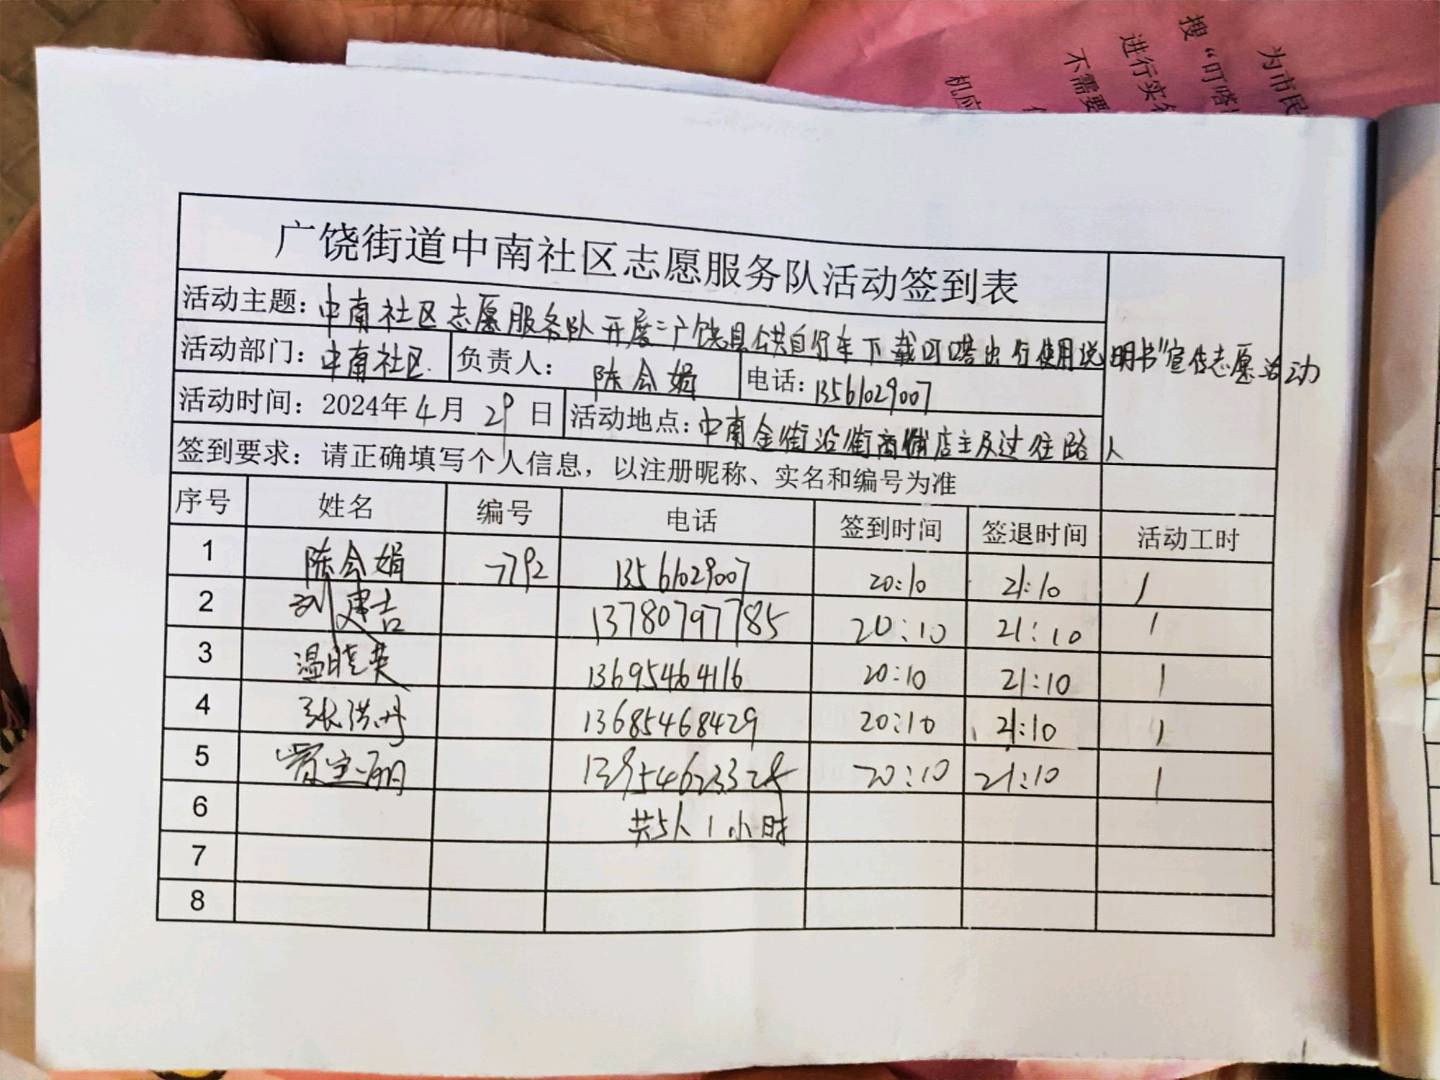 为市民
搜“叮嗒
进行实名
不需要
机应
广饶街道中南社区志愿服务队活动签到表
活动主题：中南社区志愿服务队开展“广饶县公共自行车下载叮嗒出行使用说明书”宣传志愿活动
活动部门：中南社区 负责人：陈会娟 电话：13561029007
活动时间：2024年4月29日 活动地点：中南金街沿街商铺店主及过往路人
签到要求：请正确填写个人信息，以注册昵称、实名和编号为准
序号 姓名 编号 电话 签到时间 签退时间 活动工时
1 陈会娟 7792 13561029007 20:10 21:10 1
2 刘建吉 13780797785 20:10 21:10 1
3 温晓英 13695464116 20:10 21:10 1
4 张洪丹 13685468429 20:10 21:10 1
5 贾宝丽 20:10 21:10 1
6 共5人1小时
7
8